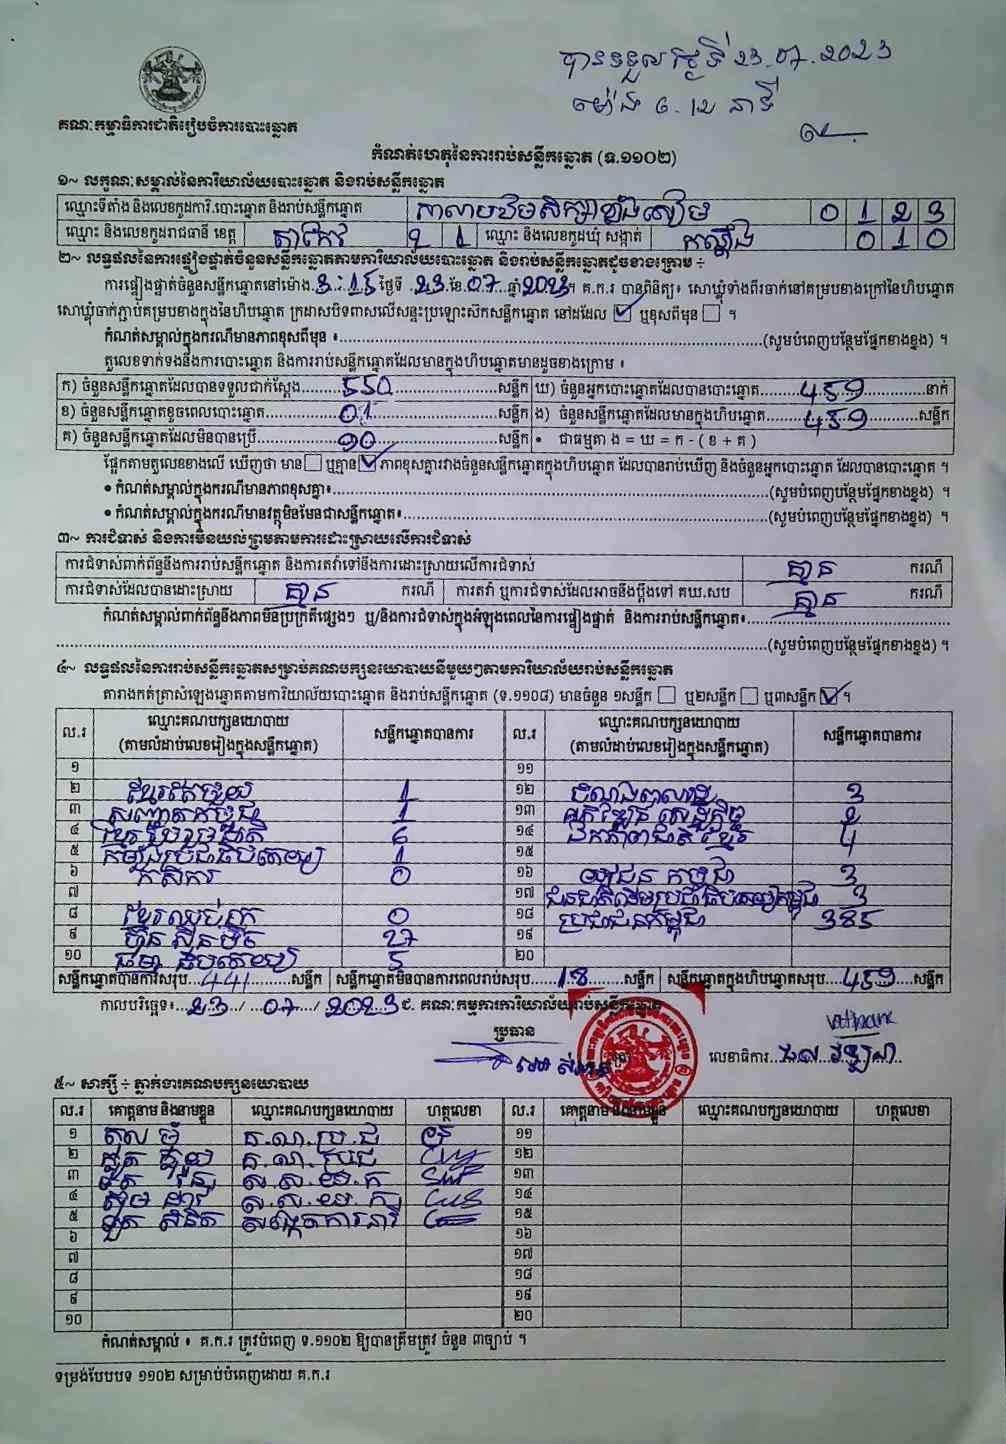 បានទទួលថ្ងៃទី 23.07.2023
ម៉ោង 6.12 នាទី
គណៈកម្មាធិការជាតិរៀបចំការបោះឆ្នោត
កំណត់ហេតុនៃការរាប់សន្លឹកឆ្នោត (ទ.១១០២)
១~ លក្ខណៈសម្គាល់នៃការិយាល័យបោះឆ្នោត និងរាប់សន្លឹកឆ្នោត
ឈ្មោះទីតាំង និងលេខកូដការិ.បោះឆ្នោត និងរាប់សន្លឹកឆ្នោត 0 1 2 3
ឈ្មោះ និងលេខកូដរាជធានី ខេត្ត តាកែវ 2 1 ឈ្មោះ និងលេខកូដឃុំ សង្កាត់ 0 1 0
២~ លទ្ធផលនៃការផ្ទៀងផ្ទាត់ចំនួនសន្លឹកឆ្នោតតាមការិយាល័យបោះឆ្នោត និងរាប់សន្លឹកឆ្នោតដូចខាងក្រោម ÷
ការផ្ទៀងផ្ទាត់ចំនួនសន្លឹកឆ្នោតនៅម៉ោង 3:15 ថ្ងៃទី 23 ខែ 07 ឆ្នាំ 2023។ គ.ក.រ បានពិនិត្យ៖ សោឃ្លុំទាំងពីរចាក់នៅគម្របខាងក្រៅនៃហិបឆ្នោត
សោឃ្លុំចាក់ភ្ជាប់គម្របខាងក្នុងនៃហិបឆ្នោត ក្រដាសបិទពាសលើសន្ទះប្រឡោះស៊កសន្លឹកឆ្នោត នៅដដែល ☑ ឬខុសពីមុន ☐ ។
កំណត់សម្គាល់ក្នុងករណីមានភាពខុសពីមុន ៖ (សូមបំពេញបន្ថែមផ្នែកខាងខ្នង) ។
តួលេខទាក់ទងនឹងការបោះឆ្នោត និងការរាប់សន្លឹកឆ្នោតដែលមានក្នុងហិបឆ្នោតមានដូចខាងក្រោម ៖
ក) ចំនួនសន្លឹកឆ្នោតដែលបានទទួលជាក់ស្ដែង 550 សន្លឹក ឃ) ចំនួនអ្នកបោះឆ្នោតដែលបានបោះឆ្នោត 459 នាក់
ខ) ចំនួនសន្លឹកឆ្នោតខូចពេលបោះឆ្នោត 01 សន្លឹក ង) ចំនួនសន្លឹកឆ្នោតដែលមានក្នុងហិបឆ្នោត 459 សន្លឹក
គ) ចំនួនសន្លឹកឆ្នោតដែលមិនបានប្រើ 90 សន្លឹក • ជាធម្មតា ង = ឃ = ក - ( ខ + គ )
ផ្អែកតាមតួលេខខាងលើ ឃើញថា មាន ☐ ឬគ្មាន ☑ ភាពខុសគ្នារវាងចំនួនសន្លឹកឆ្នោតក្នុងហិបឆ្នោត ដែលបានរាប់ឃើញ និងចំនួនអ្នកបោះឆ្នោត ដែលបានបោះឆ្នោត ។
• កំណត់សម្គាល់ក្នុងករណីមានភាពខុសគ្នា៖ (សូមបំពេញបន្ថែមផ្នែកខាងខ្នង) ។
• កំណត់សម្គាល់ក្នុងករណីមានវត្ថុមិនមែនជាសន្លឹកឆ្នោត៖ (សូមបំពេញបន្ថែមផ្នែកខាងខ្នង) ។
៣~ ការជំទាស់ និងការមិនយល់ព្រមតាមការដោះស្រាយលើការជំទាស់
ការជំទាស់ពាក់ព័ន្ធនឹងការរាប់សន្លឹកឆ្នោត និងការតវ៉ាទៅនឹងការដោះស្រាយលើការជំទាស់ គ្មាន ករណី
ការជំទាស់ដែលបានដោះស្រាយ គ្មាន ករណី ការតវ៉ា ឬការជំទាស់ដែលអាចនឹងប្ដឹងទៅ គឃ.សប គ្មាន ករណី
កំណត់សម្គាល់ពាក់ព័ន្ធនឹងភាពមិនប្រក្រតីផ្សេងៗ ឬ/និងការជំទាស់ក្នុងអំឡុងពេលនៃការផ្ទៀងផ្ទាត់ និងការរាប់សន្លឹកឆ្នោត៖
(សូមបំពេញបន្ថែមផ្នែកខាងខ្នង) ។
៤~ លទ្ធផលនៃការរាប់សន្លឹកឆ្នោតសម្រាប់គណបក្សនយោបាយនីមួយៗតាមការិយាល័យរាប់សន្លឹកឆ្នោត
តារាងកត់ត្រាសំឡេងឆ្នោតតាមការិយាល័យបោះឆ្នោត និងរាប់សន្លឹកឆ្នោត (ទ.១១០៨) មានចំនួន ១សន្លឹក ☐ ឬ២សន្លឹក ☐ ឬ៣សន្លឹក ☑ ។
ល.រ ឈ្មោះគណបក្សនយោបាយ (តាមលំដាប់លេខរៀងក្នុងសន្លឹកឆ្នោត) សន្លឹកឆ្នោតបានការ ល.រ ឈ្មោះគណបក្សនយោបាយ (តាមលំដាប់លេខរៀងក្នុងសន្លឹកឆ្នោត) សន្លឹកឆ្នោតបានការ
១ ១១
២ ខ្មែរតែមួយ 1 ១២ 3
៣ សញ្ជាតិកម្ពុជា 1 ១៣ 2
៤ ខ្មែររួបរួមជាតិ 6 ១៤ ឯកភាពជាតិខ្មែរ 4
៥ កម្លាំងប្រជាធិបតេយ្យ 1 ១៥
៦ កសិករ 0 ១៦ យុវជនកម្ពុជា 3
៧ ១៧ ជនជាតិដើមប្រជាធិបតេយ្យកម្ពុជា 3
៨ ខ្មែរឈប់ក្រ 0 ១៨ ប្រជាជនកម្ពុជា 385
៩ ហ៊្វុនស៊ិនប៉ិច 27 ១៩
១០ ធម្មាធិបតេយ្យ 5 ២០
សន្លឹកឆ្នោតបានការសរុប 441 សន្លឹក សន្លឹកឆ្នោតមិនបានការពេលរាប់សរុប 18 សន្លឹក សន្លឹកឆ្នោតក្នុងហិបឆ្នោតសរុប 459 សន្លឹក
កាលបរិច្ឆេទ៖ 23 / 07 / 2023 ៩. គណៈកម្មការការិយាល័យរាប់សន្លឹកឆ្នោត
ប្រធាន
លេខាធិការ
៥~ សាក្សី ÷ ភ្នាក់ងារគណបក្សនយោបាយ
ល.រ គោត្តនាម និងនាមខ្លួន ឈ្មោះគណបក្សនយោបាយ ហត្ថលេខា ល.រ គោត្តនាម និងនាមខ្លួន ឈ្មោះគណបក្សនយោបាយ ហត្ថលេខា
១ គ.ណ.ប្រ.ជ ១១
២ គ.ណ.ប្រជ ១២
៣ ស.ស.យ.ក ១៣
៤ ស.ស.យ.ក ១៤
៥ សង្កេតការនារី ១៥
៦ ១៦
៧ ១៧
៨ ១៨
៩ ១៩
១០ ២០
កំណត់សម្គាល់ ៖ គ.ក.រ ត្រូវបំពេញ ទ.១១០២ ឱ្យបានត្រឹមត្រូវ ចំនួន ៣ច្បាប់ ។
ទម្រង់បែបបទ ១១០២ សម្រាប់បំពេញដោយ គ.ក.រ